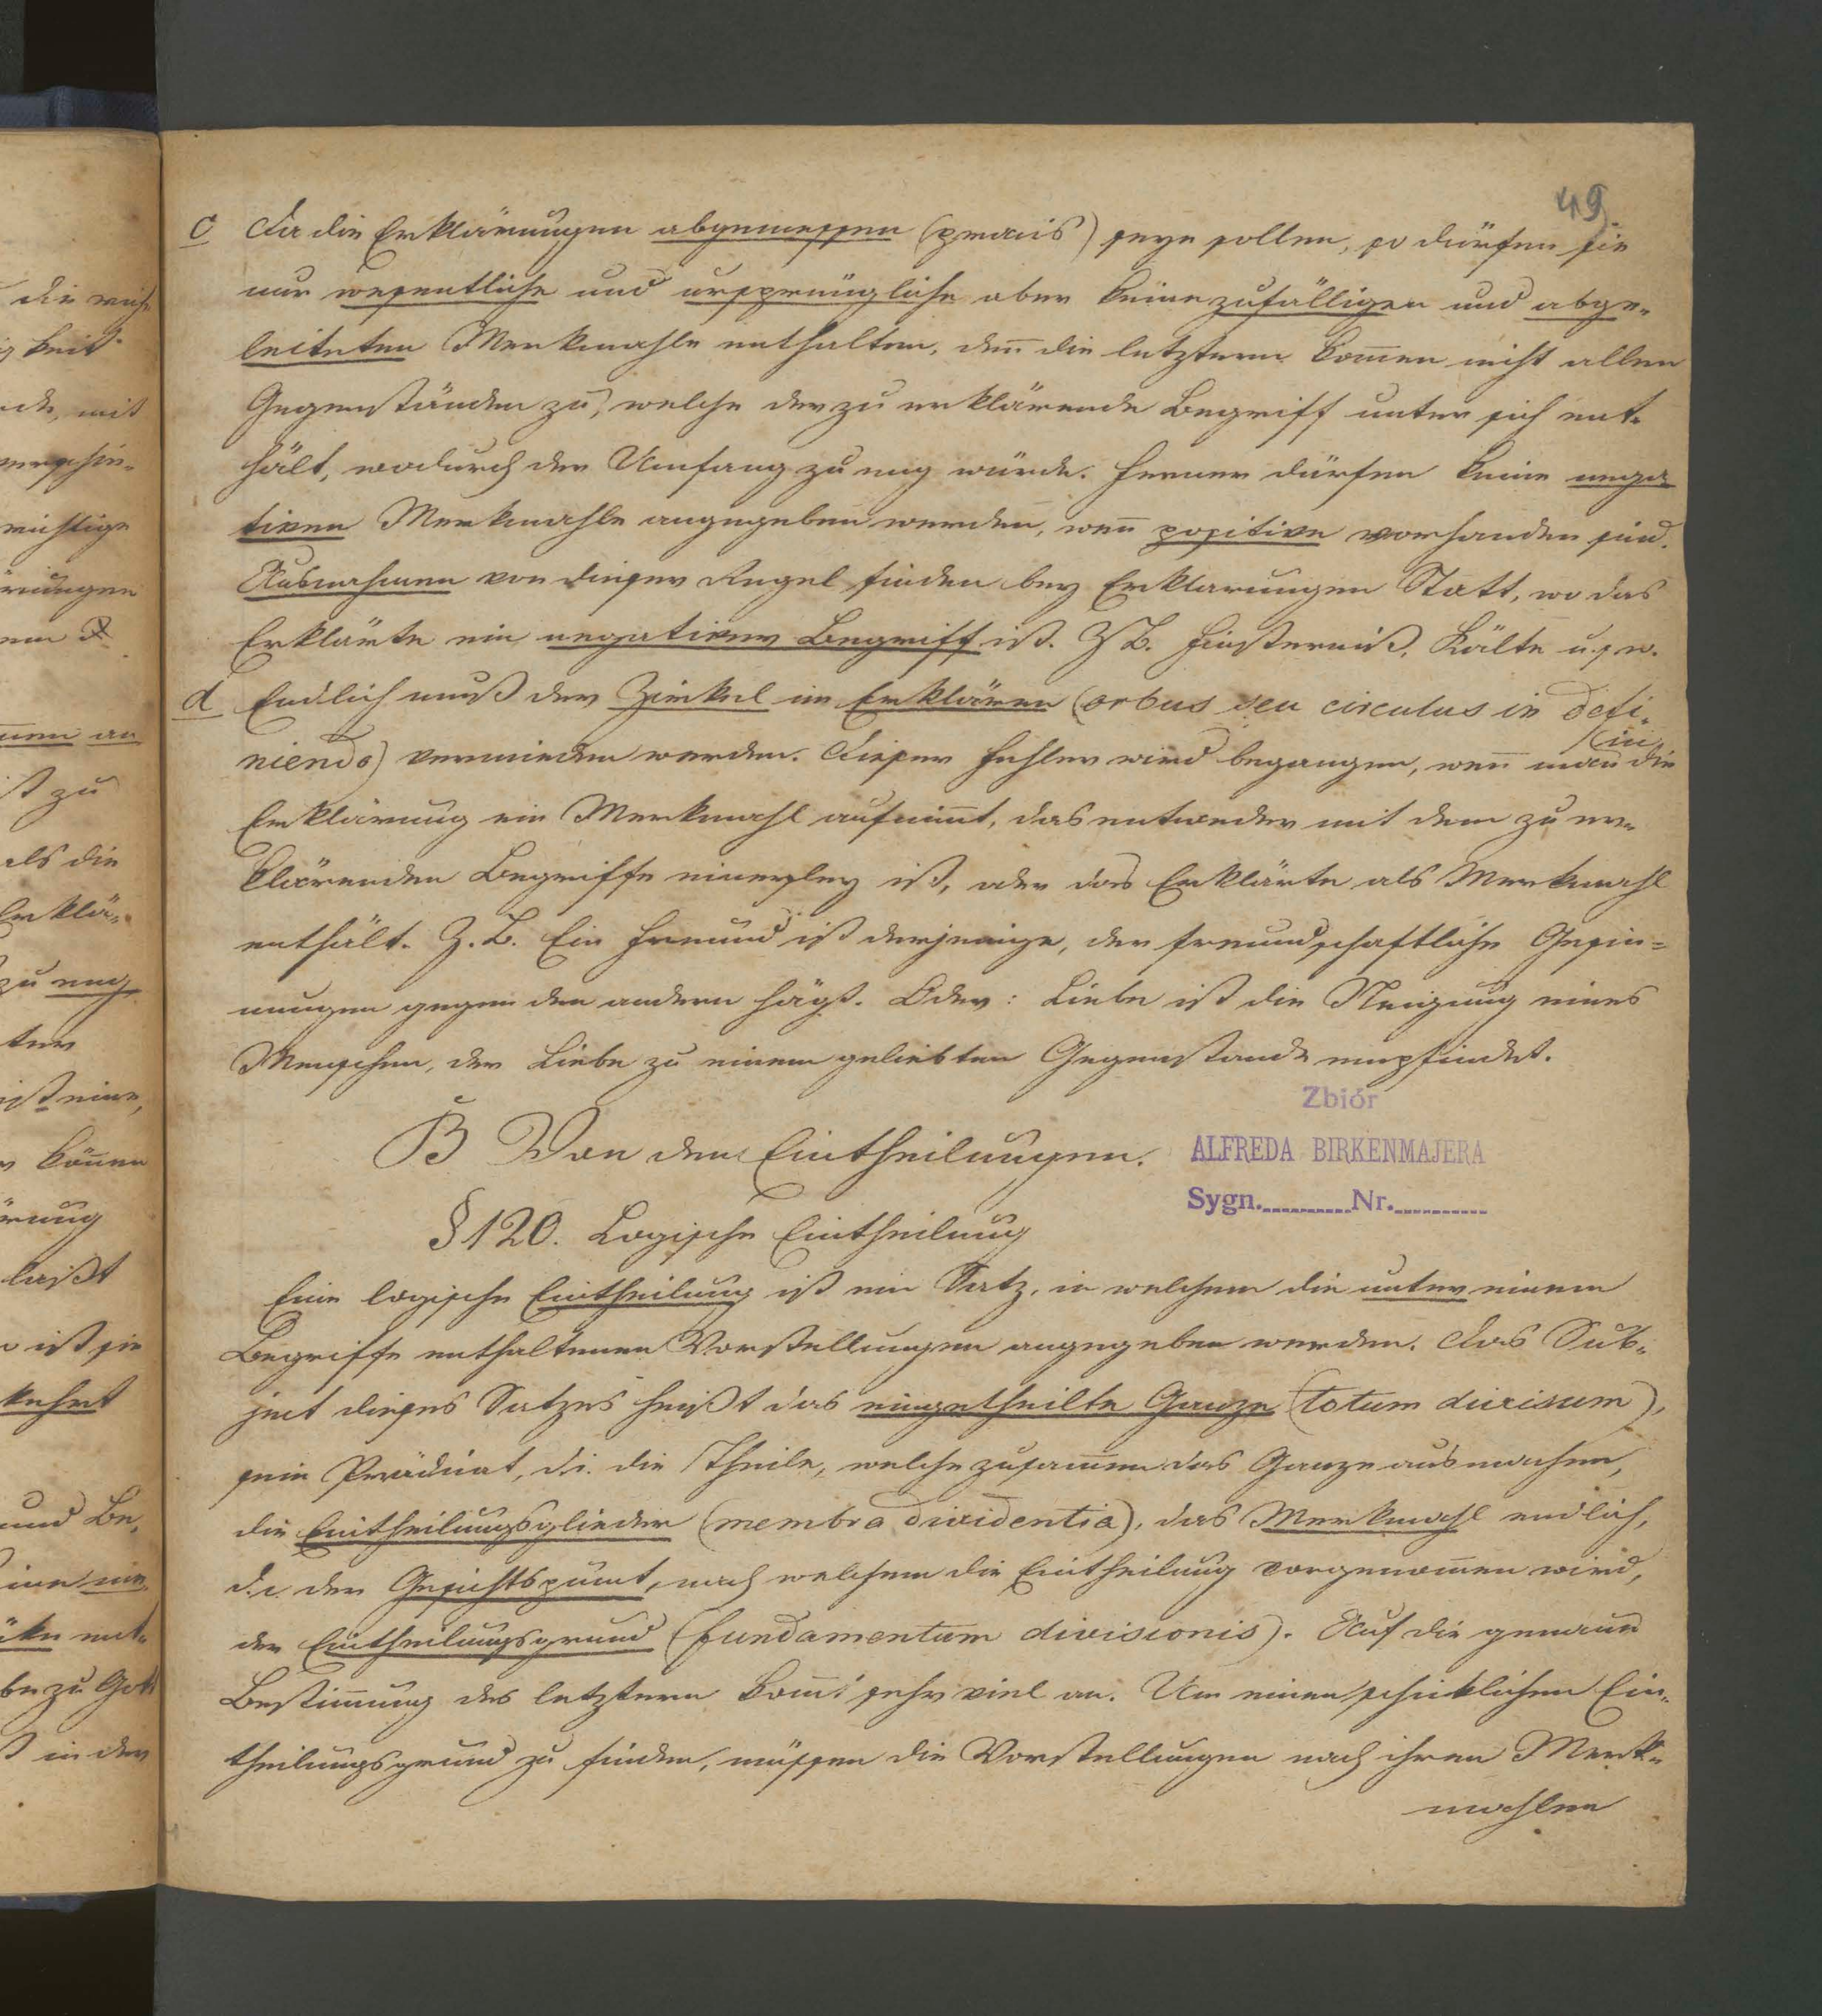 49.
c Da die Erklärungen abgemessen (præcis) seyn sollen, so dürfen sie
nur wesentliche und ursprüngliche aber keine zufälligen und abge-
leiteten Merkmahle enthalten, deñ die letztern kom̃en nicht allen
Gegenständen zu, welche der zu erklärende Begriff unter sich ent-
hält, wodurch der Umfang zu eng würde. Ferner dürfen keine nega
tiven Merkmahle angegeben werden, weñ positive vorhanden sind.
Ausnahmen von dieser Regel finden bey Erklarungen Statt, wo das
Erklärte ein negativer Begriff ist. Z B. Finsterniß, Kälte u. s. w.
d Endlich muß der Zirkel im Erklären (orbus seu circulus in defi-
niendo) vermieden werden. Dieser Fehler wird begangen, weñ man in die
Erklärung ein Merkmahl aufnim̃t, das entweder mit dem zu er-
klärenden Begriffe einerley ist, oder das Erklärte als Merkmahl
enthält. Z. B. Ein Freund ist derjenige, der freundschaftliche Gesin-
nungen gegen den andern hägt. Oder: Liebe ist die Neigung eines
Menschen, der Liebe zu einem geliebten Gegenstande empfindet.
Zbiór
ALFREDA BIRKENMAJERA
Sygn. Nr.
B Von den Eintheilungen.
§ 120. Logische Eintheilung
Eine logische Eintheilung ist ein Satz, in welchem die unter einem
Begriffe enthaltenen Vorstellungen angegeben werden. Das Sub-
ject dieses Satzes heißt das eingetheilte Ganze (totum divisum),
sein Prädicat, d. i. die Theile, welche zusam̃en das Ganze ausmachen,
die Eintheilungsglieder (membra dividentia), das Merkmahl endlich,
d. i. der Gesichtspunct, nach welchem die Eintheilung vorgenom̃en wird,
der Eintheilungsgrund (fundamentum divisionis). Auf die genaue
Bestim̃ung des letztern kom̃t sehr viel an. Um einen schicklichen Ein-
theilungsgrund zu finden, müssen die Vorstellungen nach ihren Merk-
mahlen